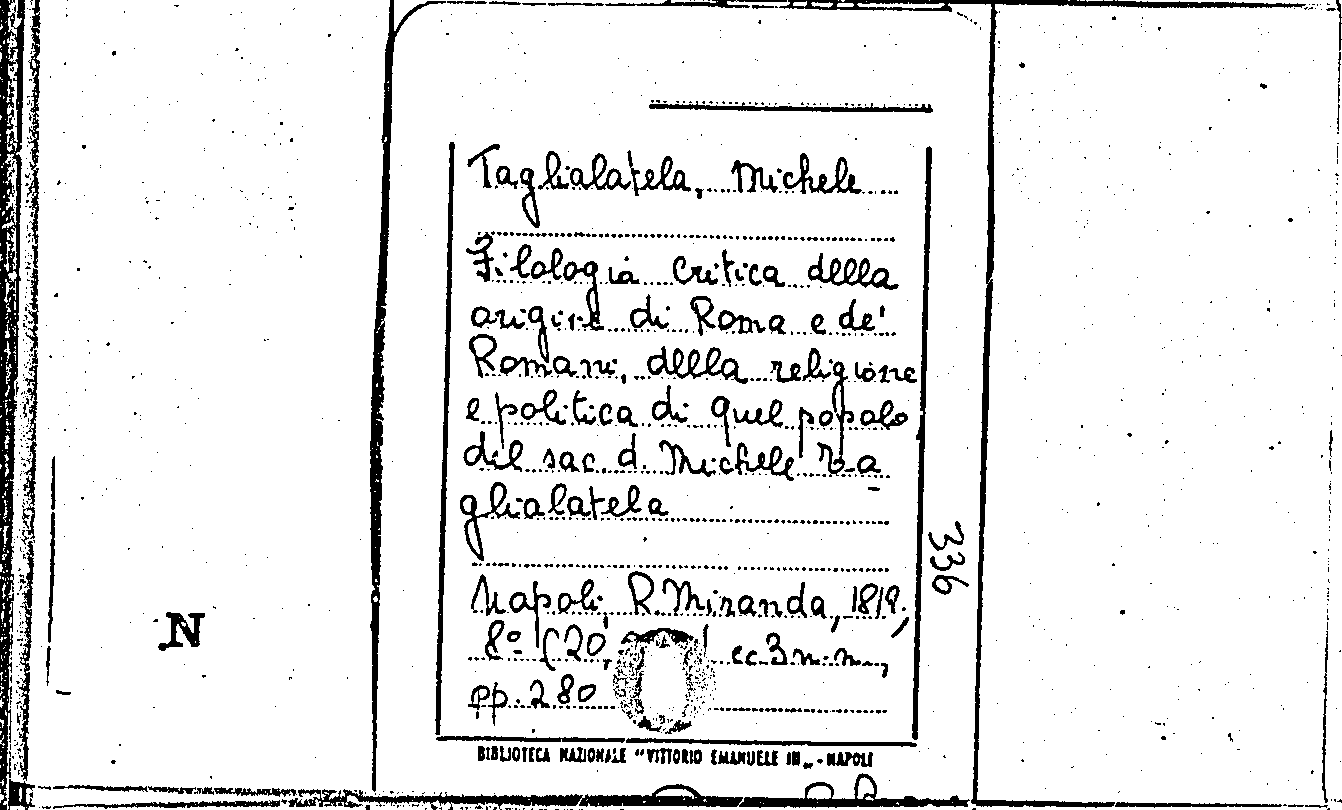 Taglialatela, Michele
Filologia critica della
origine di Roma e de'
Romani, della religione
e politica di quel popolo
del sac. d. Michele Ta
glialatela
Napoli, R. Miranda, 1819,
8° (20, ec. 3 n.n.,
pp. 280
336
N
BIBLIOTECA NAZIONALE "VITTORIO EMANUELE III„ - NAPOLI